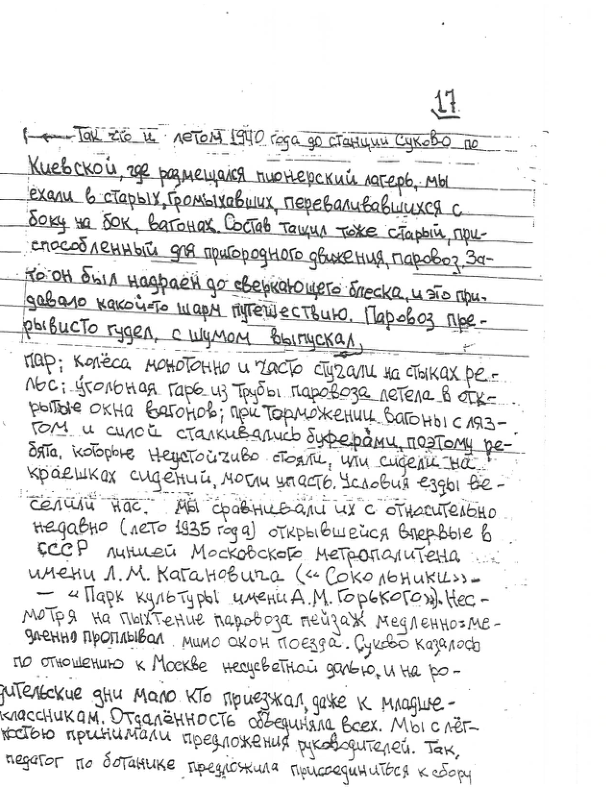 17
Так что и летом 1940 года до станции Суково по
Киевской, где размещался пионерский лагерь, мы
ехали в старых, громыхавших, переваливавшихся с
боку на бок, вагонах. Состав тащил тоже старый, при-
способленный для пригородного движения, паровоз. За-
то он был надраен до сверкающего блеска, и это при-
давало какой-то шарм путешествию. Паровоз пре-
рывисто гудел, с шумом выпускал
пар; колёса монотонно и часто стучали на стыках ре-
льс; угольная гарь из трубы паровоза летела в отк-
рытые окна вагонов; при торможении вагоны с ляз-
гом и силой сталкивались буферами, поэтому ре-
бята, которые неустойчиво стояли, или сидели на
краешках сидений, могли упасть. Условия езды ве-
селили нас. Мы сравнивали их с относительно
недавно (лето 1935 года) открывшейся впервые в
СССР линией Московского метрополитена
имени Л.М. Кагановича («Сокольники» -
- «Парк культуры имени А.М. Горького»). Нес-
мотря на пыхтение паровоза пейзаж медленно-ме-
дленно проплывал мимо окон поезда. Суково казалось
по отношению к Москве несусветной далью, и на ро-
дительские дни мало кто приезжал, даже к младше-
классникам. Отдалённость объединяла всех. Мы с лёг-
костью принимали предложения руководителей. Так,
педагог по ботанике предложила присоединиться к сбору